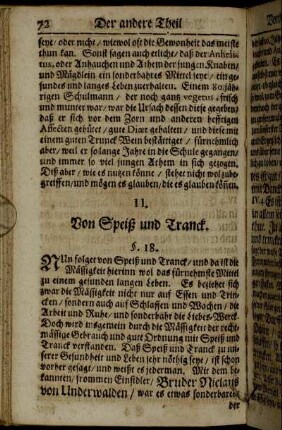 72 Der andere Theil
seye/ oder nicht/ wiewol oft die Gewonheit das meiste
thun kan. Sonst sagen auch etliche/ daß der Anheli-
tus, oder Anhauchen und Athem der jungen Knaben/
und Mägdlein ein sonderbahres Mittel seye/ ein ge-
sundes und langes Leben zu erhalten. Einem 80jäh-
rigen Schulmann/ der noch gantz vegetus, frisch
und munter war/ war die Ursach dessen diese gegeben/
daß er sich vor dem Zorn und anderen hefftigen
Affecten gehütet/ gute Diæt gehalten/ und diese mit
einem guten Trunck Wein bestättiget/ fürnehmlich
aber/ weil er so lange Jahre in die Schule gegangen/
und immer so viel jungen Athem in sich gezogen.
Diß aber/ wie es nutzen könne/ stehet nicht wol zu be-
greiffen/ und mögen es glauben/ die es glauben können.
11.
Von Speiß und Tranck.
§. 18.
NUn folget von Speiß und Tranck/ und da ist die
Mässigkeit hierinn wol das fürnemste Mittel
zu einem gesunden langen Leben. Es beziehet sich
zwar die Mässigkeit nicht nur auf Essen und Trin-
cken/ sondern auch auf Schlaffen und Wachen/ die
Arbeit und Ruhe/ und sonderbahr die Liebes-Werck.
Doch wird insgemein durch die Mässigkeit der recht-
mässige Gebrauch und gute Ordnung mit Speiß und
Tranck verstanden. Daß Speiß und Tranck zu un-
serer Gesundheit und Leben sehr nöthig seye/ ist schon
vorher gesagt/ und weißt es jederman. Mit dem be-
kannten/ frommen Einsidler/ Bruder Niclaus
von Underwalden/ war es etwas sonderbares/
der